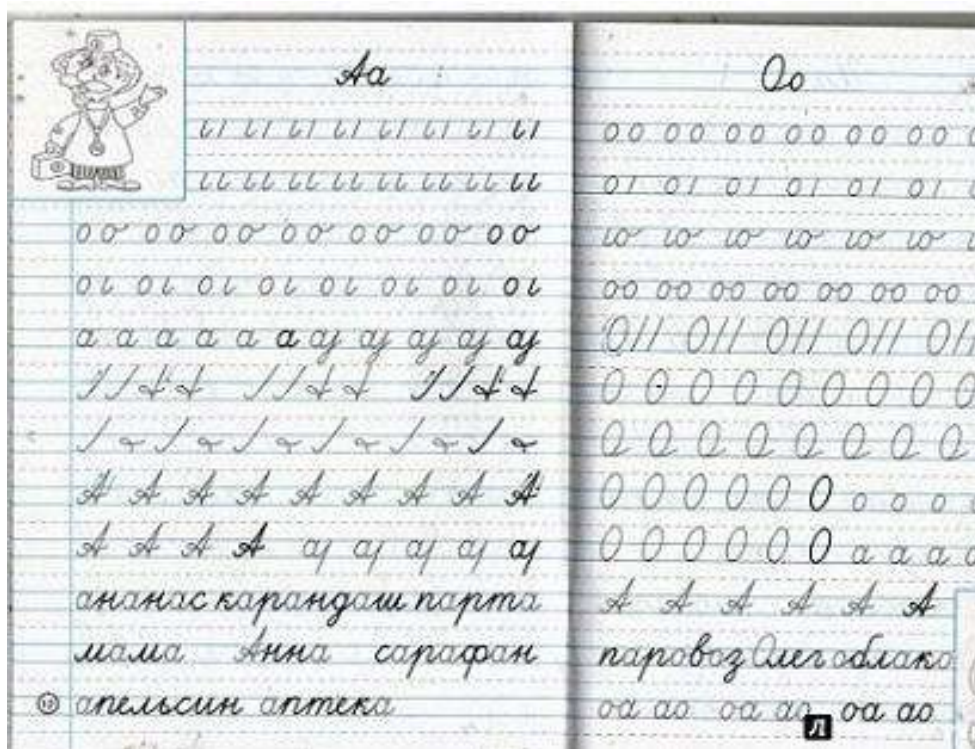 Аа
а а а а а а
А А А А А А А А А
А А А А
ананас карандаш парта
мама Анна сарафан
апельсин аптека
12
Оо
оо оо оо оо оо оо
оо оо оо оо оо оо оо
О О О О О О О О
О О О О О О о о о о
О О О О О О а а а а
А А А А А А
паровоз Олег облако
оа ао оа ао оа ао
Л